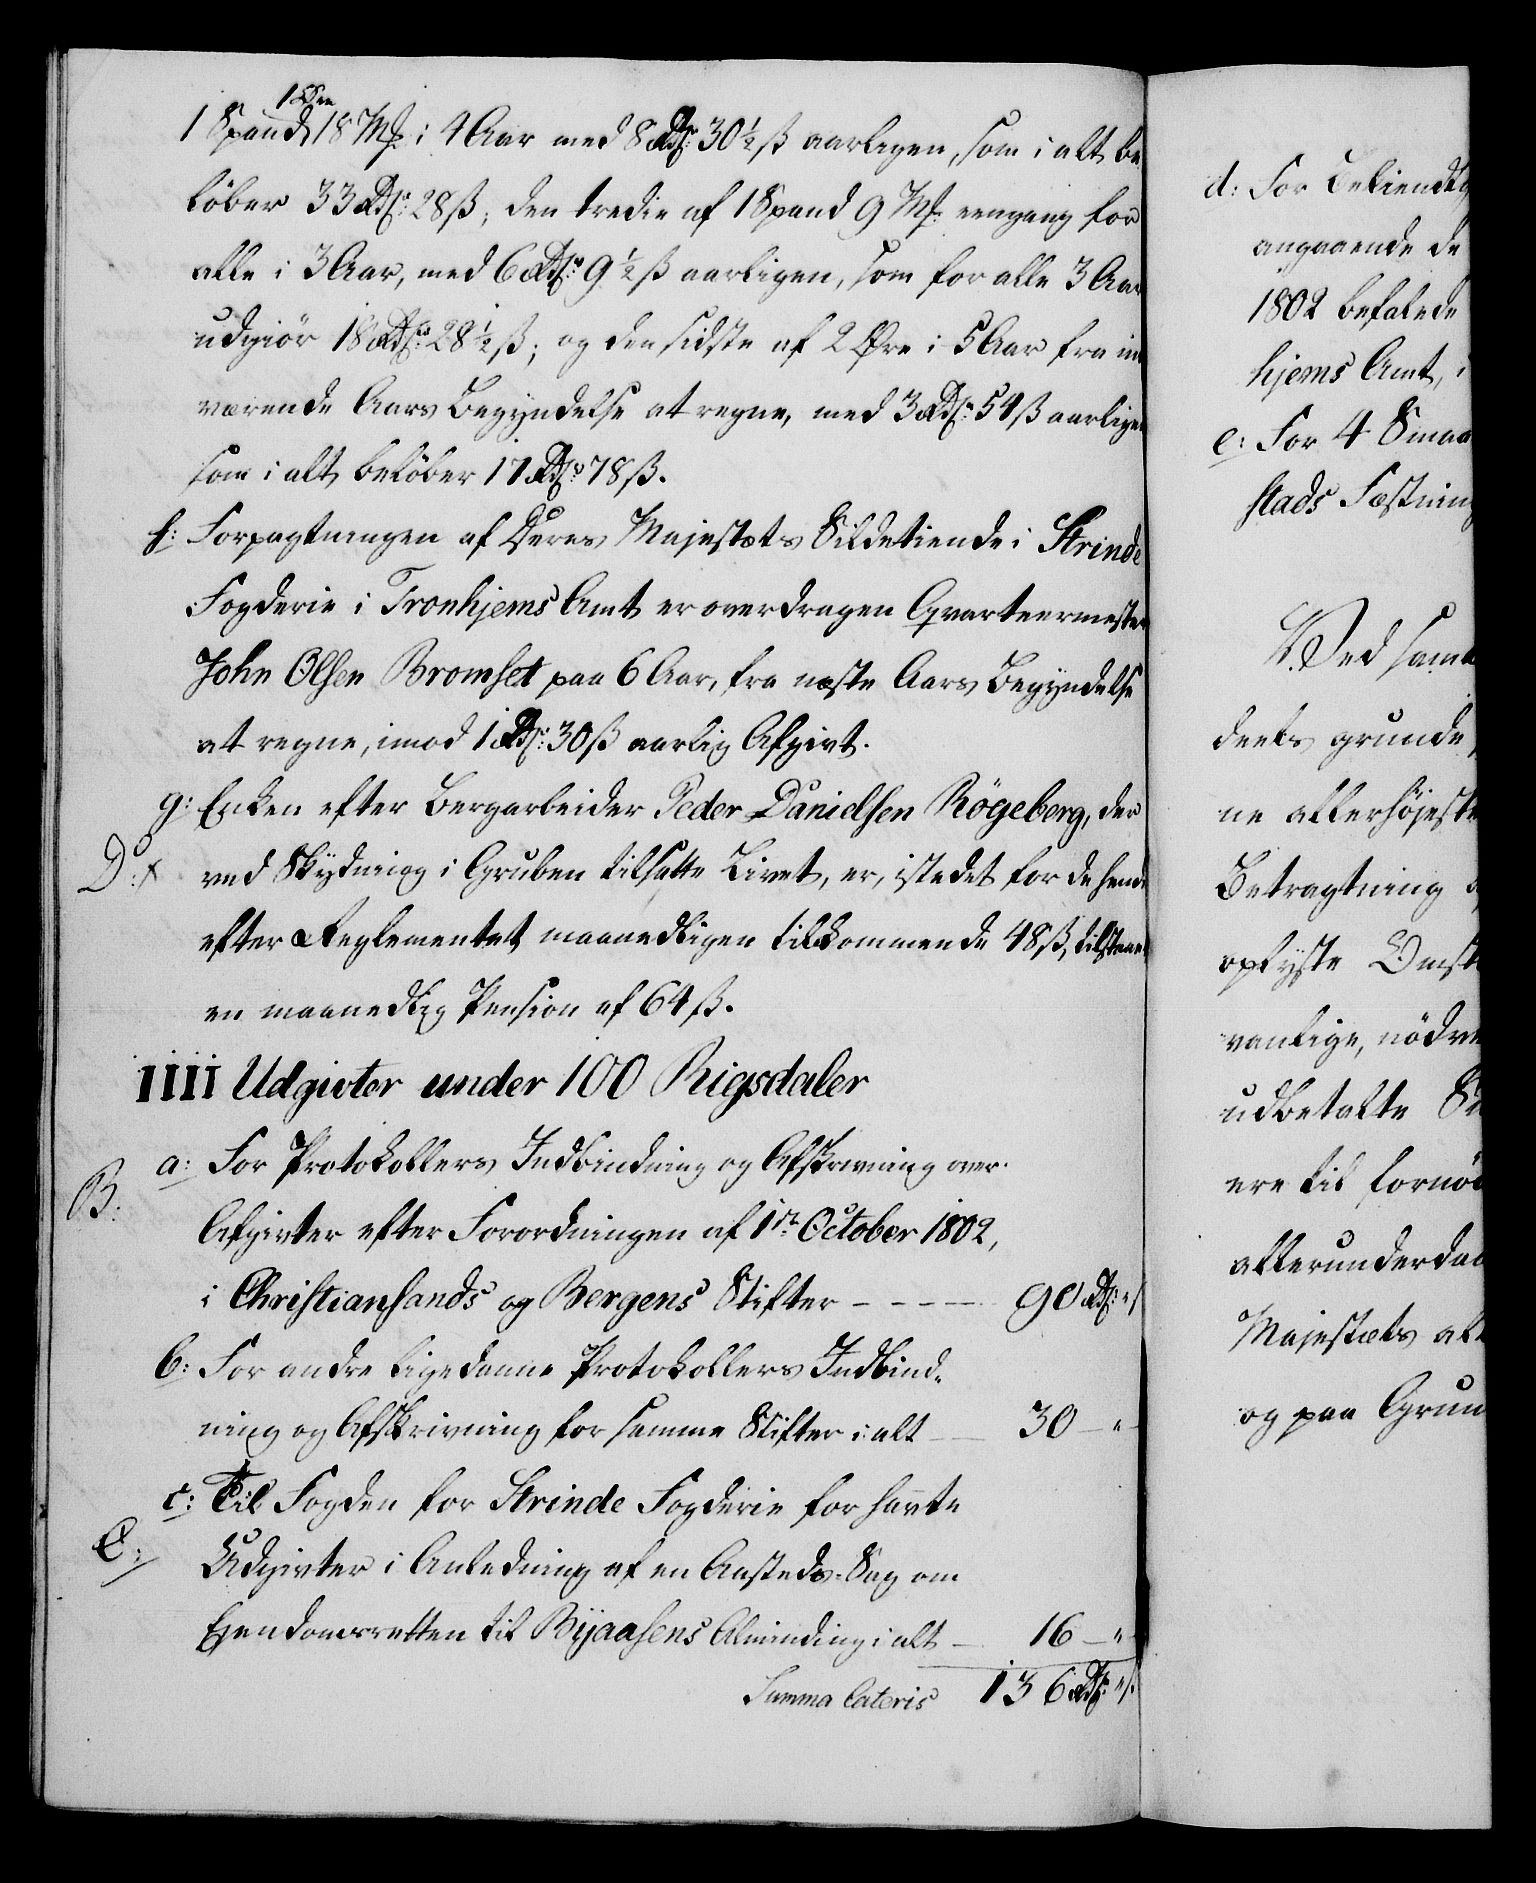 1 Øre
1 Spand 18 Mk i 4 Aar med 8 Rdr: 30½ ß aarligen, som i alt be
löber 33 Rdr: 28 ß; den tredie af 1 Spand 9 Mk eengang for
alle i 3 Aar, med 6 Rdr: 9½ ß aarligen, som for alle 3 Aar
udgiör 18 Rdr: 28½ ß; og den sidste af 2 Øre i 5 Aar fra in
værende Aars Begyndelse at regne, med 3 Rdr: 54 ß aarligen
som i alt belöber 17 Rdr: 78 ß.
f: Forpagtningen af Deres Majestæts Sildetiende i Strinde
Fogderie i Tronhjems Amt er overdragen Qvarteermester
John Olsen Bromset paa 6 Aar, fra næste Aars Begyndelse
at regne, imod 1 Rdr: 30 ß aarlig Afgivt.
g: Enken efter Bergarbeider Peder Danielsen Rögeberg, der
D: x ved Skydning i Gruben tilsatte Livet, er, istedet for de hende
efter Reglementet maanedligen tilkommende 48 ß, tilstaaet
en maanedlig Pension af 64 ß.
IIII Udgivter under 100 Rigsdaler
a: For Protokollers Indbinding og Afskrivning over
B:
Afgivter efter Forordningen af 1ste October 1802,
i Christiansands og Bergens Stifter - - - - 90 Rdr: " ß
b: For andre ligedanne Protokollers Indbind-
ning og Afskrivning for samme Stifter i alt - - 30 - " -
c: Til Fogden for Strinde Fogderie for havte
E:
Udgivter i Anledning af en Aasteds-Sag om
Ejendomsretten til Byaasens Alminding i alt - 16 - " -
Summa lateris 136 Rdr: " ß.
d: For Bekiendtg
angaaende de
1802 befalede
hjems Amt, i
e: For 4 Smaa
stads Fæstning
Ved sam
deels grunde
ne allerhöjeste
Betragtning
oplyste Omst
vanlige, nödve
udbetalte
ere til fornö
allerunderda
Majestæts al
og paa Grun